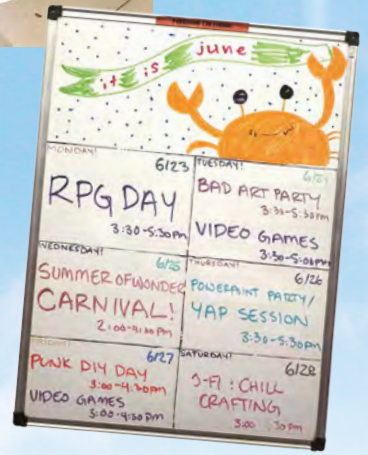 it is june
MONDAY!
6/23
RPG DAY
3:30-5:30pm
TUESDAY!
6/24
BAD ART PARTY
3:30-5:30pm
VIDEO GAMES
3:30-5:00pm
WEDNESDAY!
6/25
SUMMER OF WONDER
CARNIVAL!
2:00-4:00pm
THURSDAY!
6/26
POWERPOINT PARTY/
YAP SESSION
3:30-5:30pm
FRIDAY!
6/27
PUNK DIY DAY
3:00-4:30pm
VIDEO GAMES
3:00-4:30pm
SATURDAY!
6/28
CHILL
CRAFTING
3:00